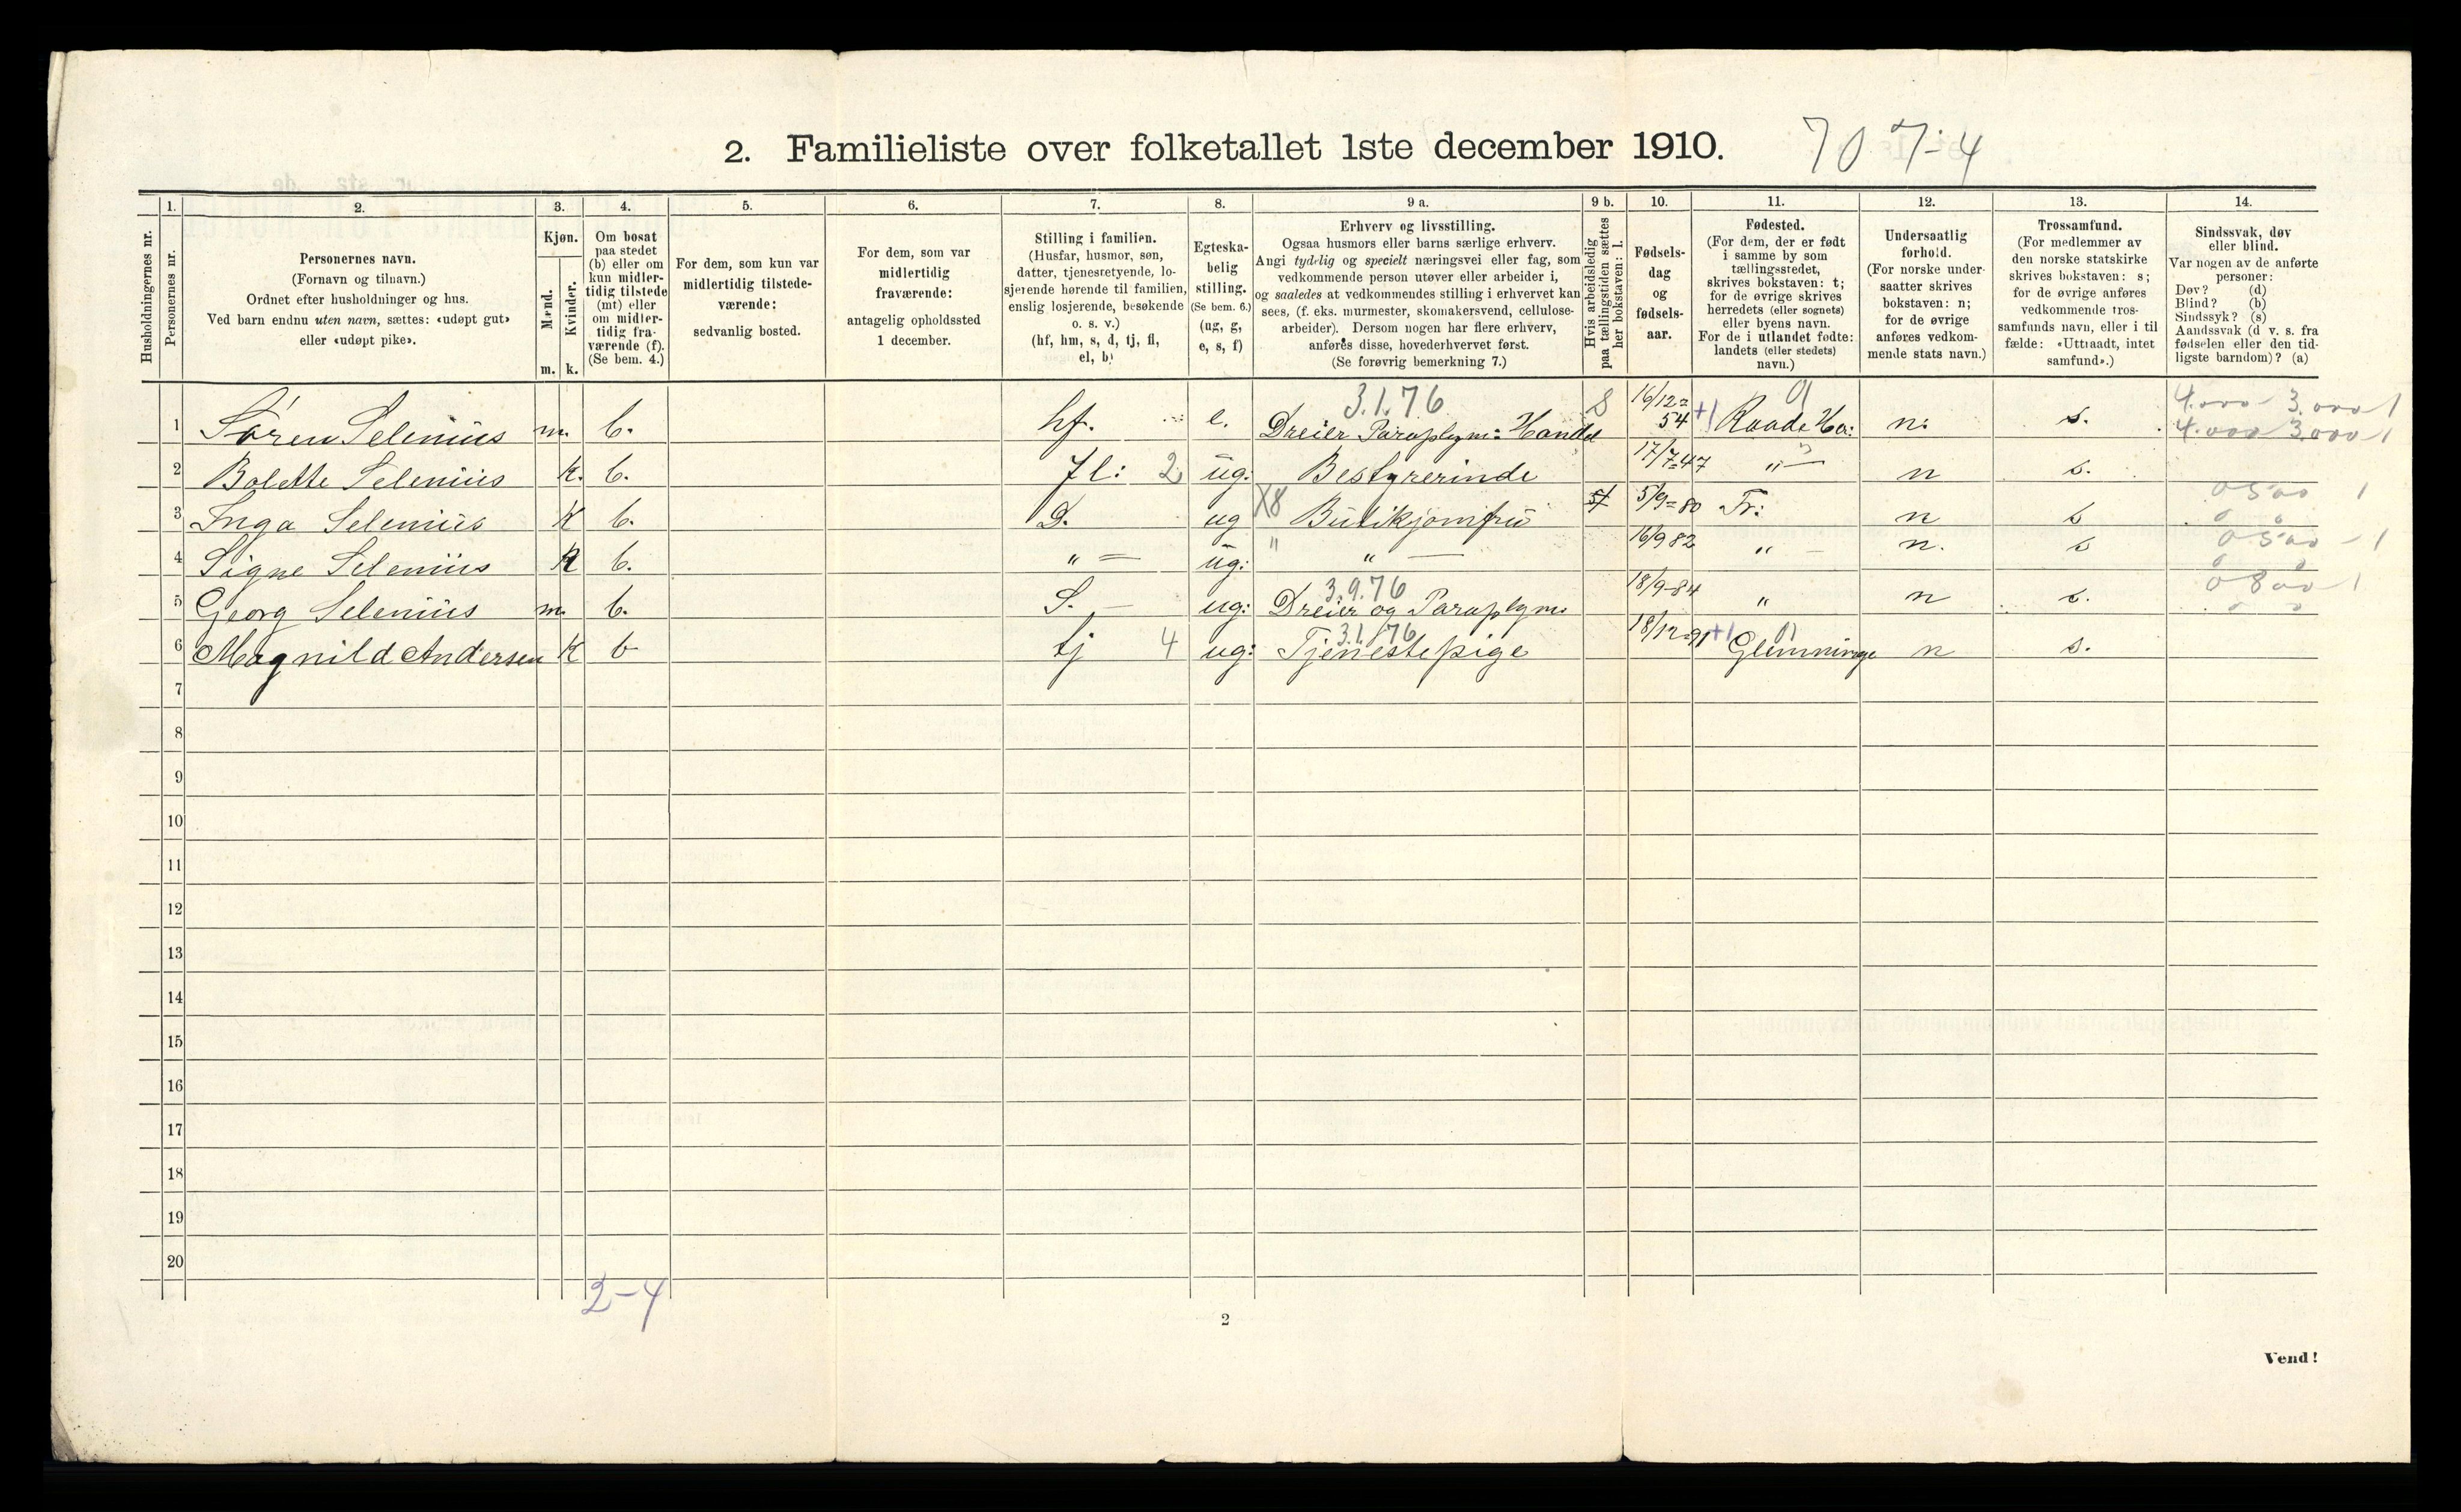 2. Familieliste over folketallet 1ste december 1910. 70 7-4
Husholdningernes nr.
1. Personernes nr.
2. Personernes navn.
(Fornavn og tilnavn.)
Ordnet efter husholdninger og hus.
Ved barn endnu uten navn, sættes: «udøpt gut»
eller «udøpt pike».
3. Kjøn.
Mænd. Kvinder.
m. k.
4. Om bosat
paa stedet
(b) eller om
kun midler-
tidig tilstede
(mt) eller
om midler-
tidig fra-
værende (f).
(Se bem. 4.)
5. For dem, som kun var
midlertidig tilstede-
værende:
sedvanlig bosted.
6. For dem, som var
midlertidig
fraværende:
antagelig opholdssted
1 december.
7. Stilling i familien.
(Husfar, husmor, søn,
datter, tjenestetyende, lo-
sjerende hørende til familien,
enslig losjerende, besøkende
o. s. v.)
(hf, hm, s, d, tj, fl,
el, b)
8. Egteska-
belig
stilling.
(Se bem. 6.)
(ug, g,
e, s, f)
9 a. Erhverv og livsstilling.
Ogsaa husmors eller barns særlige erhverv.
Angi tydelig og specielt næringsvei eller fag, som
vedkommende person utøver eller arbeider i,
og saaledes at vedkommendes stilling i erhvervet kan
sees, (f. eks. murmester, skomakersvend, cellulose-
arbeider). Dersom nogen har flere erhverv,
anføres disse, hovederhvervet først.
(Se forøvrig bemerkning 7.)
9 b. Hvis arbeidsledig
paa tællingstiden sættes
her bokstaven: l.
10. Fødsels-
dag
og
fødsels-
aar.
11. Fødested.
(For dem, der er født
i samme by som
tællingsstedet,
skrives bokstaven: t;
for de øvrige skrives
herredets (eller sognets)
eller byens navn.
For de i utlandet fødte:
landets (eller stedets)
navn.)
12. Undersaatlig
forhold.
(For norske under-
saatter skrives
bokstaven: n;
for de øvrige
anføres vedkom-
mende stats navn.)
13. Trossamfund.
(For medlemmer av
den norske statskirke
skrives bokstaven: s;
for de øvrige anføres
vedkommende tros-
samfunds navn, eller i til
fælde: «Uttraadt, intet
samfund».)
14. Sindssvak, døv
eller blind.
Var nogen av de anførte
personer:
Døv? (d)
Blind? (b)
Sindssyk? (s)
Aandssvak (d v. s. fra
fødselen eller den tid-
ligste barndom)? (a)
3.1.76
4.000 3.000 1
1 Søren Selenius m. b. hf. e. Dreier Paraplym: Handel 16/12= 54 +1 Raade Ha: n: s. 4.000 3.000 1
2 Bolette Selenius k. b. fl: 2 ug: Bestyrerinde 17/7=47 " — n s.
3 Inga Selenius K b. D. ug X8 Butikjomfru 5/9=80 Fr: n s 0 500 1
4 Signe Selenius K b. " = ug: " " — 16/9 82 " — n. s 0 500 - 1
3.9.76
5 Georg Selenius m. b. S. — ug: Dreier og Paraplym. 18/9-84 " n s. 0 800 1
3.1.76
6 Magnild Andersen K b tj 4 ug: Tjenestepige 18/12=91 +1 Glemminge n s.
7
8
9
10
11
12
13
14
15
16
17
18
19
20
2-4
2
Vend!